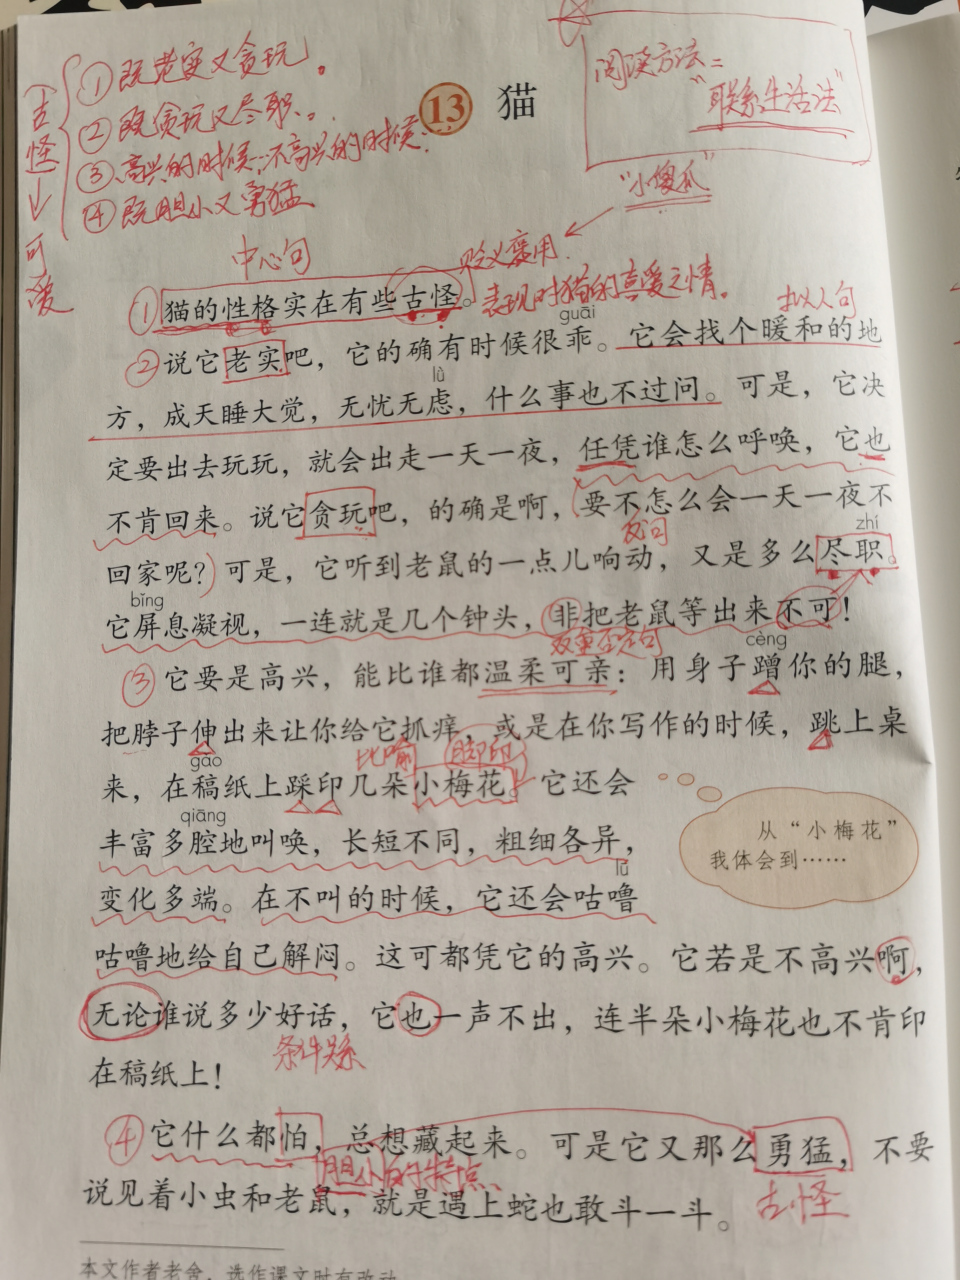 ①既老实又贪玩。
②既贪玩又尽职。
③高兴的时候;不高兴的时候:
④既胆小又勇猛
古怪→可爱
13 猫
阅读方法:
“联系生活法”
“小傻瓜”
中心句
贬义褒用
①猫的性格实在有些古怪。
表现对猫的喜爱之情。
拟人句
guāi
②说它老实吧，它的确有时候很乖。它会找个暖和的地
lǜ
方，成天睡大觉，无忧无虑，什么事也不过问。可是，它决
定要出去玩玩，就会出走一天一夜，任凭谁怎么呼唤，它也
不肯回来。说它贪玩吧，的确是啊，要不怎么会一天一夜不
反问
zhí
回家呢？可是，它听到老鼠的一点儿响动，又是多么尽职。
bǐng
它屏息凝视，一连就是几个钟头，非把老鼠等出来不可！
双重否定句
cèng
③它要是高兴，能比谁都温柔可亲：用身子蹭你的腿，
把脖子伸出来让你给它抓痒，或是在你写作的时候，跳上桌
gǎo
比喻
脚印
来，在稿纸上踩印几朵小梅花。它还会
qiāng
丰富多腔地叫唤，长短不同，粗细各异，
从“小梅花”
我体会到……
lū
变化多端。在不叫的时候，它还会咕噜
咕噜地给自己解闷。这可都凭它的高兴。它若是不高兴啊，
无论谁说多少好话，它也一声不出，连半朵小梅花也不肯印
条件关系
在稿纸上！
④它什么都怕，总想藏起来。可是它又那么勇猛，不要
胆小的特点、
说见着小虫和老鼠，就是遇上蛇也敢斗一斗。
古怪
本文作者老舍，选作课文时有改动